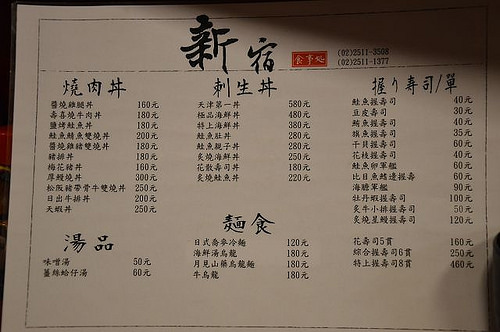 新宿 食事処
(02)2511-3508
(02)2511-1377
燒肉丼
醬燒雞腿丼 160元
壽喜燒牛肉丼 180元
鹽烤鮭魚丼 180元
鮭魚鯖魚雙燒丼 200元
醬燒雞豬雙燒丼 180元
豬排丼 180元
梅花豬丼 160元
厚鰻燒丼 300元
松阪豬帶骨牛雙燒丼 250元
日出牛排丼 200元
天蝦丼 250元
湯品
味噌湯 50元
薑絲蛤仔湯 60元
刺生丼
天津第一丼 580元
極品海鮮丼 480元
特上海鮮丼 380元
鮭魚肚丼 280元
鮭魚親子丼 280元
炙燒海鮮丼 250元
花散壽司丼 180元
炙燒鮭魚丼 220元
麵食
日式蕎麥冷麵 120元
海鮮湯烏龍 180元
月見山藥烏龍麵 180元
牛烏龍 180元
握り寿司/單
鮭魚握壽司 40元
豆皮壽司 30元
鯖魚握壽司 40元
旗魚握壽司 35元
干貝握壽司 60元
花枝握壽司 40元
鮭魚卵軍艦 60元
比目魚鰭邊握壽司 60元
海膽軍艦 90元
牡丹蝦握壽司 100元
炙牛小排握壽司 50元
炙燒星鰻握壽司 120元
花壽司5貫 160元
綜合握壽司6貫 250元
特上握壽司8貫 460元